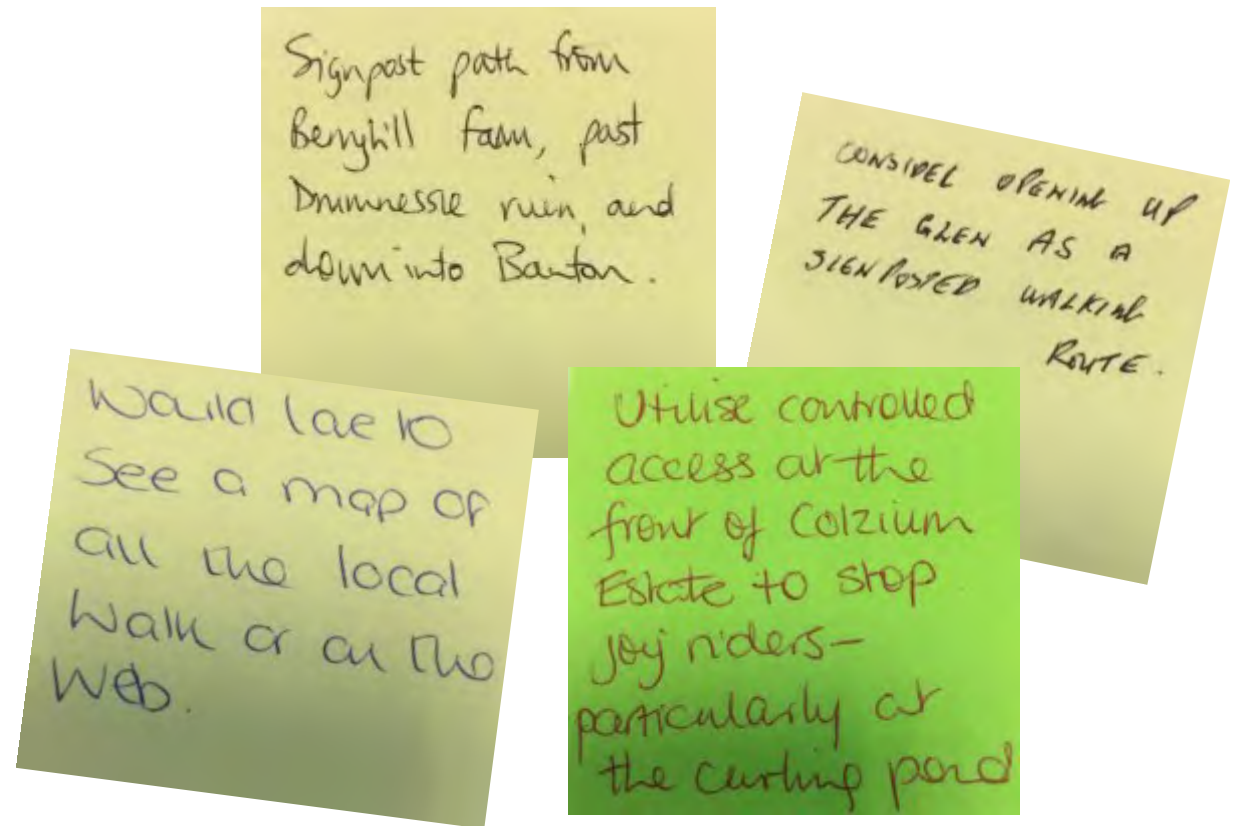 Signpost path from
Berryhill farm, past
Drumnessie ruin, and
down into Banton.
CONSIDER OPENING UP
THE GLEN AS A
SIGNPOSTED WALKING
ROUTE.
Would love to
See a map of
all the local
Walk or on the
Web.
Utilise controlled
access at the
front of Colzium
Estate to stop
joy riders-
particularly at
the curling pond